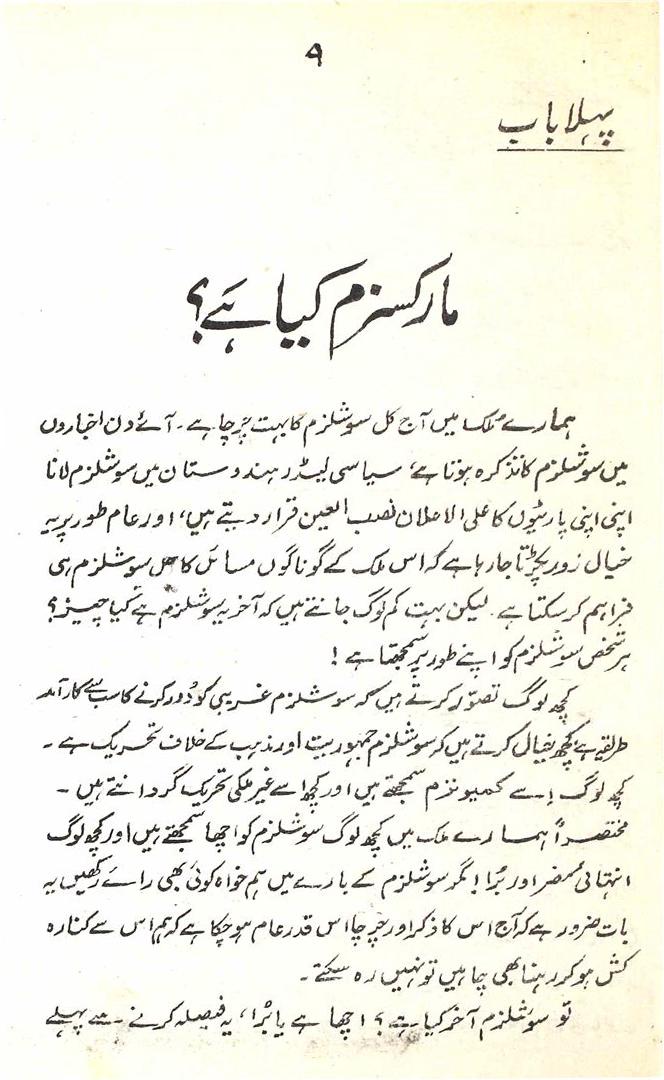 ۹
پہلا باب
مارکسزم کیا ہے؟
ہمارے ملک میں آج کل سوشلزم کا بہت چرچا ہے۔ آئے دن اخباروں
میں سوشلزم کا تذکرہ ہوتا ہے، سیاسی لیڈر ہندوستان میں سوشلزم لانا
اپنی اپنی پارٹیوں کا علی الاعلان نصب العین قرار دیتے ہیں، اور عام طور پر یہ
خیال زور پکڑتا جا رہا ہے کہ اس ملک کے گوناگوں مسائل کا حل سوشلزم ہی
فراہم کر سکتا ہے۔ لیکن بہت کم لوگ جانتے ہیں کہ آخر یہ سوشلزم ہے کیا چیز؟
ہر شخص سوشلزم کو اپنے طور پر سمجھتا ہے!
کچھ لوگ تصوّر کرتے ہیں کہ سوشلزم غریبی کو دُور کرنے کا سب سے کارآمد
طریقہ ہے کچھ خیال کرتے ہیں کہ سوشلزم جمہوریت اور مذہب کے خلاف تحریک ہے۔
کچھ لوگ اِسے کمیونزم سمجھتے ہیں اور کچھ اسے غیر ملکی تحریک گردانتے ہیں۔
مختصراً ہمارے ملک میں کچھ لوگ سوشلزم کو اچھا سمجھتے ہیں اور کچھ لوگ
انتہائی مُضر اور بُرا! مگر سوشلزم کے بارے میں ہم خواہ کوئی بھی رائے رکھیں یہ
بات ضرور ہے کہ آج اس کا ذکر اور چرچا اس قدر عام ہو چکا ہے کہ ہم اس سے کنارہ
کش ہو کر رہنا بھی چاہیں تو نہیں رہ سکتے۔
تو سوشلزم آخر کیا ہے؟ اچھا ہے یا بُرا، یہ فیصلہ کرنے سے پہلے